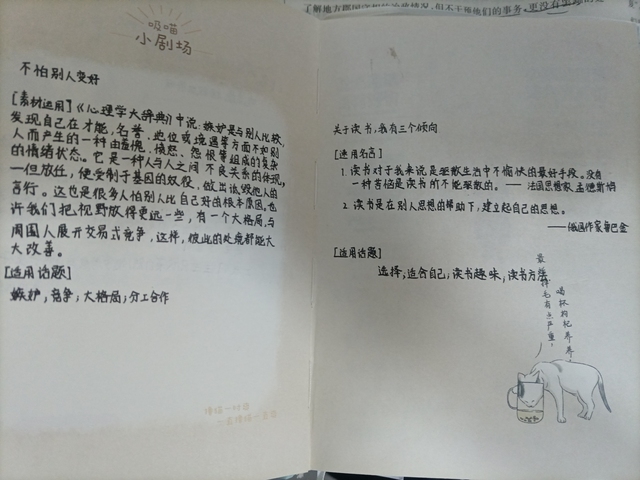 吸喵
小剧场
不怕别人变好
[素材运用]《心理学大辞典》中说:嫉妒是与别人比较,
发现自己在才能,名誉,地位或境遇等方面不如别
人而产生的一种由羞愧、愤怒、怨恨等组成的复杂
的情绪状态。它是一种人与人之间不良关系的体现,
一但放任,便受制于基因的奴役,做出诋毁他人的
言行。这也是很多人怕别人比自己好的根本原因,也
许我们把视野放得更远一些,有一个大格局,与
周围人展开交易式竞争,这样,彼此的处境都能大
大改善。
[适用话题]
嫉妒;竞争;大格局;分工合作
了解地方
他们的事务,更没有
关于读书,我有三个倾向
[适用名言]
1. 读书对于我来说是驱散生活中不愉快的最好手段。没有
一种苦恼是读书所不能驱散的。—— 法国思想家 孟德斯鸠
2. 读书是在别人思想的帮助下,建立起自己的思想。
——俄国作家鲁巴金
[适用话题]
选择,适合自己;读书趣味,读书方法
最
掉毛有点严重,
喝杯枸杞养养